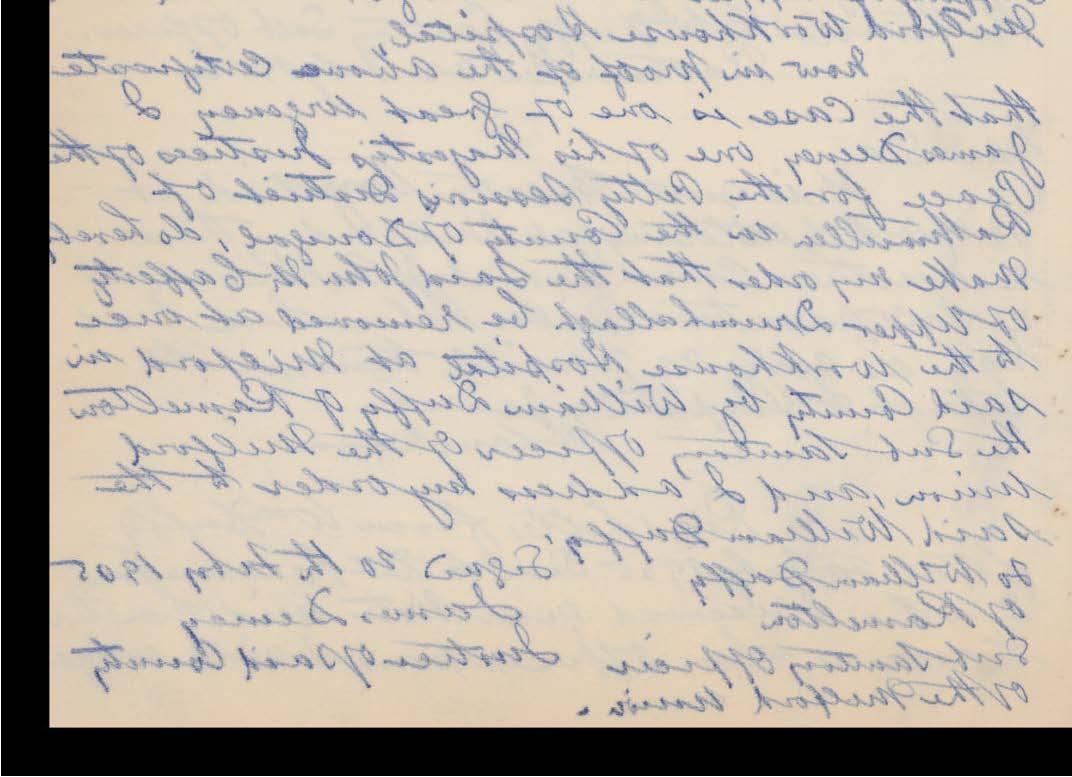 Milford Workhouse Hospital
now in proof of the above Certificate
that the Case is one of great urgency I
James Deeney one of his Majesty's Justices of the
Peace for the Petty Sessions District of
Rathmullen in the County of Donegal, do hereby
make my order that the said John McCafferty
of Upper Drumhallagh be removed at once
to the Workhouse Hospital at Milford in
said County by William Duffy of Ramelton
the Sub Sanitary Officer of the Milford
union, and I address my order to the
said William Duffy,
To William Duffy Signed 20th Feby 1905
of Ramelton James Deeney
Sub Sanitary Officer Justice of said County
of the Milford Union.